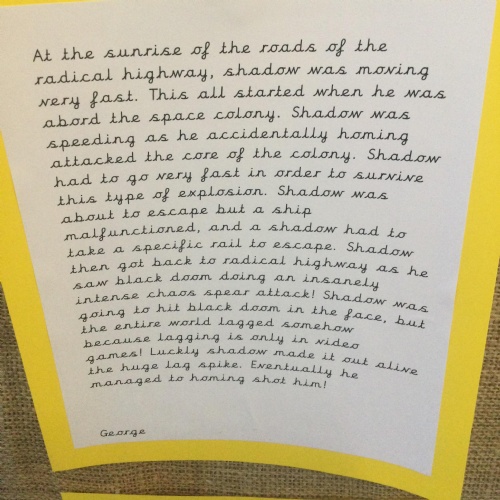 At the sunrise of the roads of the
radical highway, shadow was moving
very fast. This all started when he was
abord the space colony. Shadow was
speeding as he accidentally homing
attacked the core of the colony. Shadow
had to go very fast in order to survive
this type of explosion. Shadow was
about to escape but a ship
malfunctioned, and a shadow had to
take a specific rail to escape. Shadow
then got back to radical highway as he
saw black doom doing an insanely
intense chaos spear attack! Shadow was
going to hit black doom in the face, but
the entire world lagged somehow
because lagging is only in video
games! Luckly shadow made it out alive
the huge lag spike. Eventually he
managed to homing shot him!
George